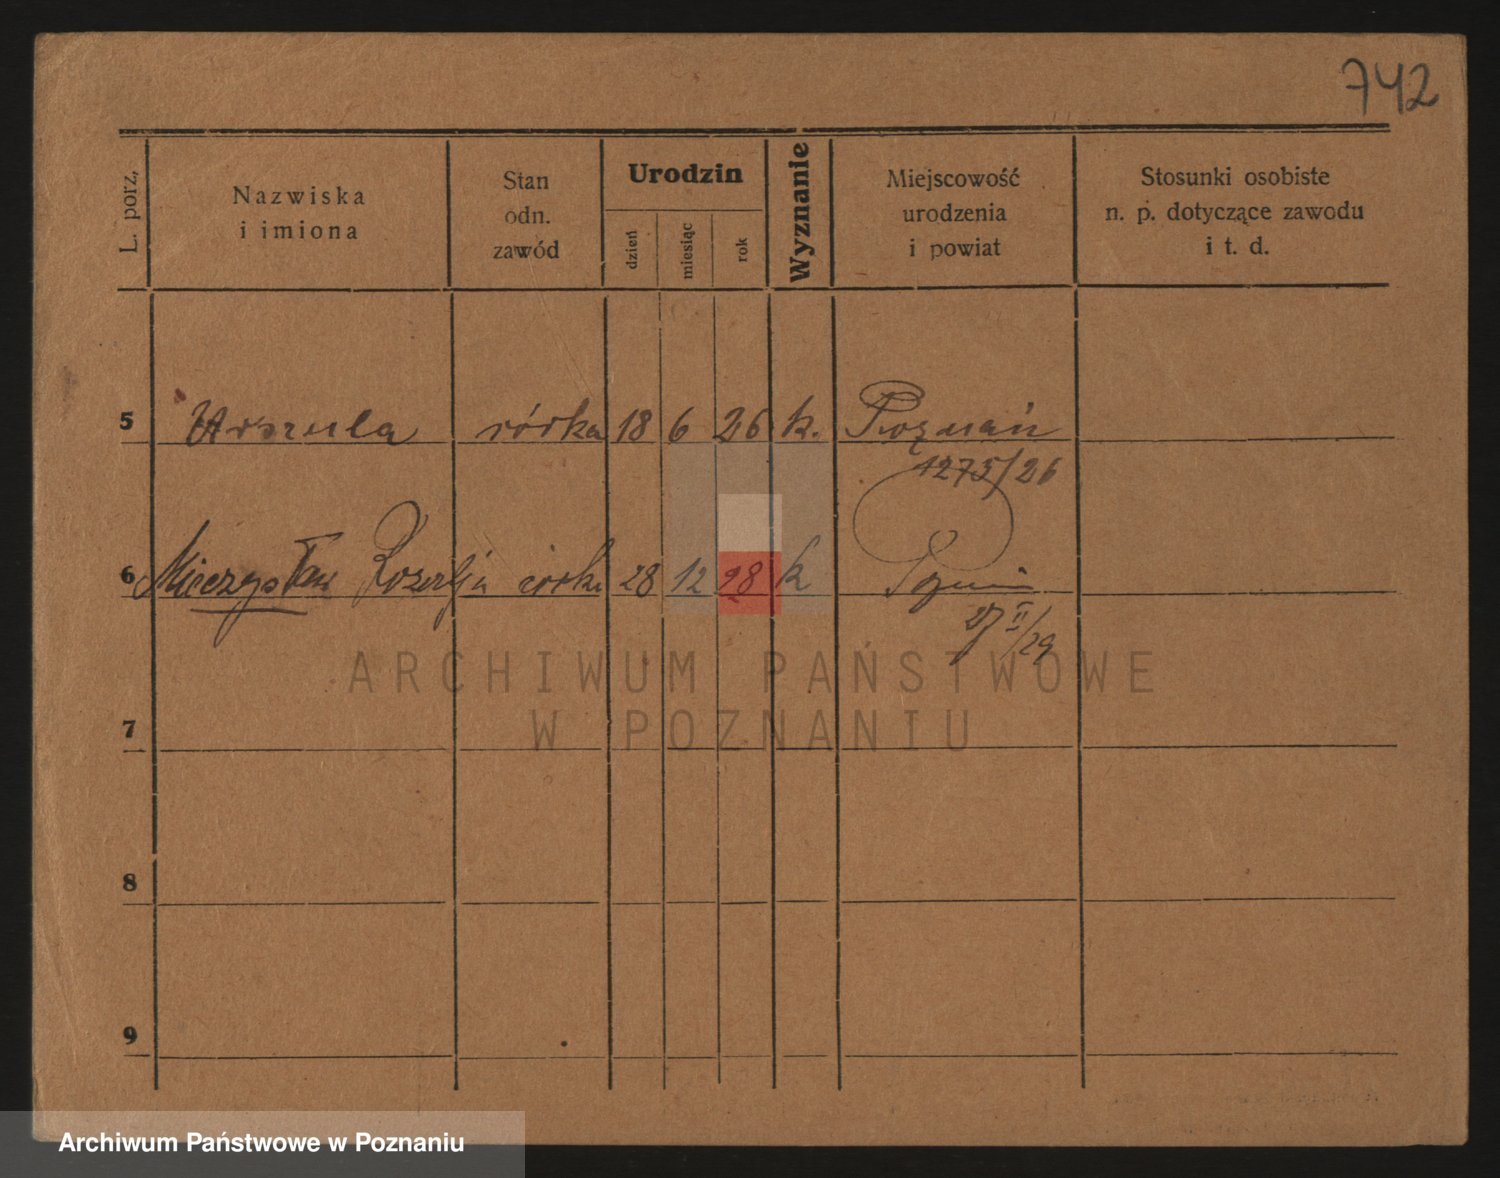 742
L. porz,
Nazwiska
i imiona
Stan
odn.
zawód
Urodzin
dzień
miesiąc
rok
Wyznanie
Miejscowość
urodzenia
i powiat
Stosunki osobiste
n. p. dotyczące zawodu
i t. d.
5 Urszula córka 18 6 26 k. Poznań
1275/26
6 Mieczysława Rozalja córka 28 12 28 k
II/29
7
8
9
ARCHIWUM PAŃSTWOWE
W POZNANIU
Archiwum Państwowe w Poznaniu